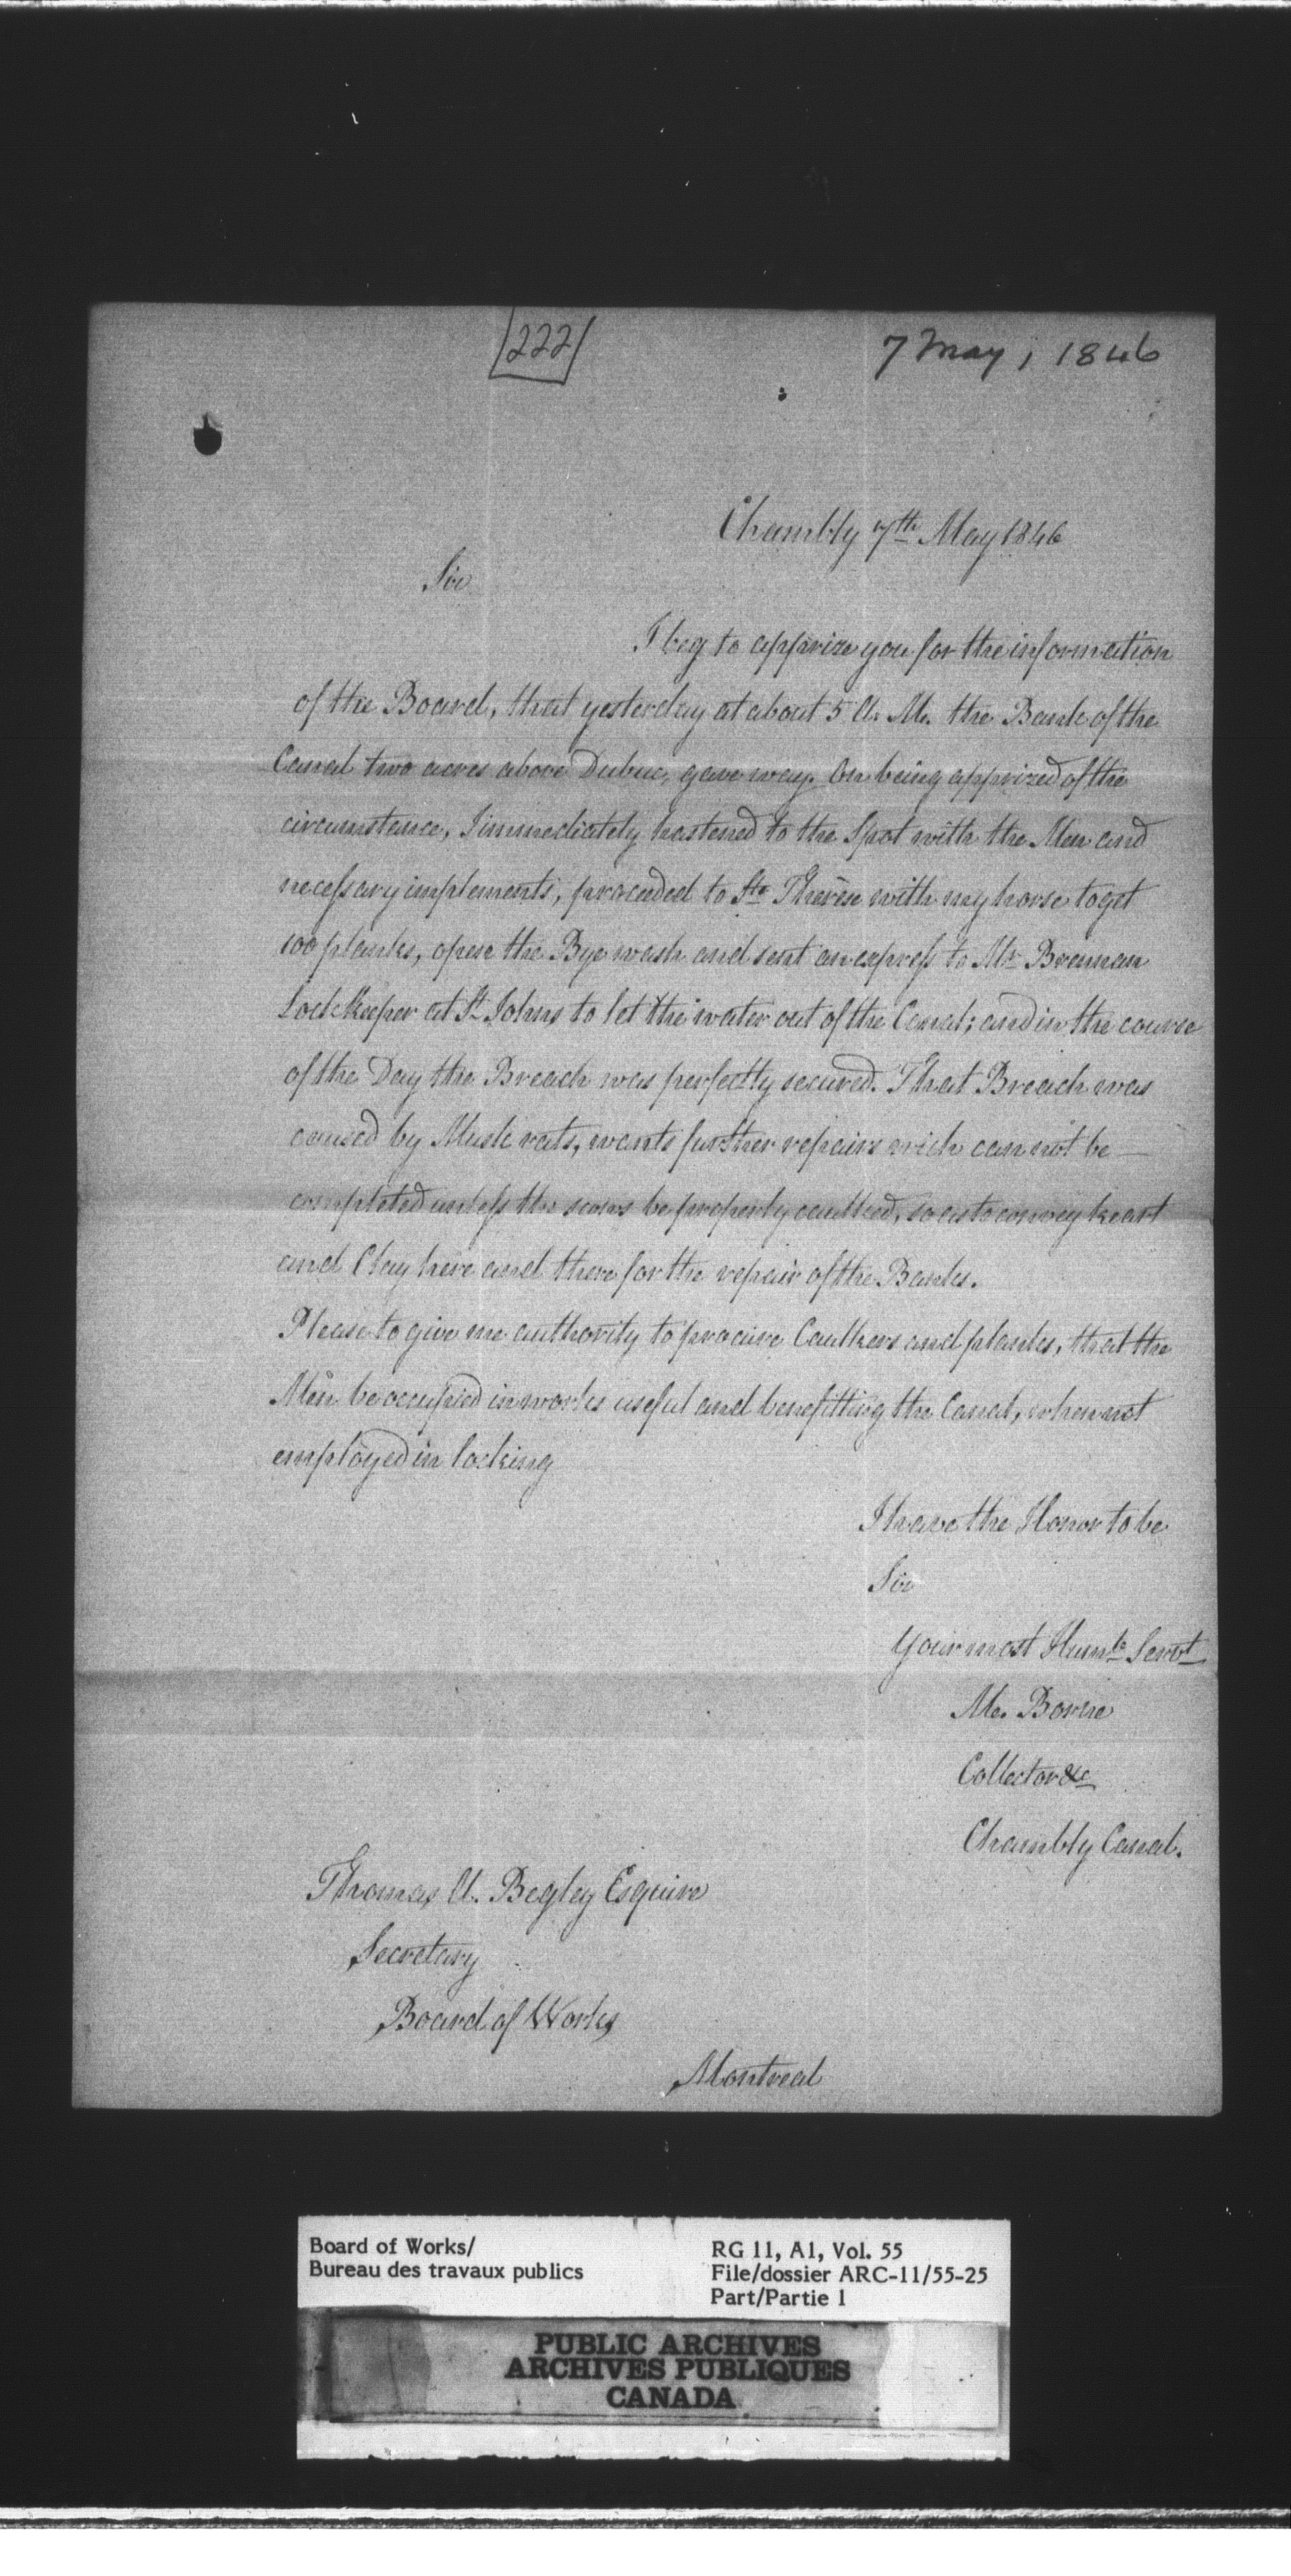 222
7 May, 1846
Chambly 7th May 1846
Sir
I beg to apprize you for the information
of the Board, that yesterday at about 5 A. M. the Bank of the
Canal two acres above Dubuc, gave way. On being apprized of the
circumstance, I immediately hastened to the Spot with the Men and
necessary implements, proceeded to Ste Thérèse with my horse to get
100 planks, open the Bye wash and sent an express to Mr Brennan
Lock Keeper at St Johns to let the water out of the Canal; and in the course
of the Day the Breach was perfectly secured. That Breach was
caused by Musk rats, wants further repairs wich can not be —
completed unless the scows be properly caulked, so as to convey
and Clay here and there for the repair of the Banks.
Please to give me authority to procure Caulkers and planks, that the
Men be occupied in works useful and benefitting the Canal, when not
employed in locking
I have the Honor to be
Sir
Your most Humle Servt
Me. Borne
Collector &c
Chambly Canal.
Thomas A. Begley Esquire
Secretary
Board of Works
Montreal
Board of Works/
Bureau des travaux publics
RG 11, A1, Vol. 55
File/dossier ARC-11/55-25
Part/Partie 1
PUBLIC ARCHIVES
ARCHIVES PUBLIQUES
CANADA